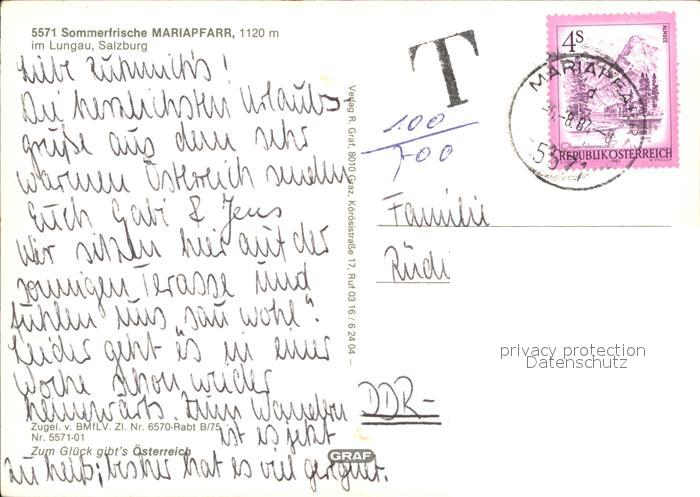 5571 Sommerfrische MARIAPFARR, 1120 m
im Lungau, Salzburg
Liebe
Die herzlichsten Urlaubs-
grüße aus dem sehr
warmen Österreich senden
Euch Gabi & Jens
Wir sitzen hier auf der
sonnigen Terasse und
fühlen uns "sau wohl".
Leider geht es in einer
Woche schon wieder
heimwärts. Zum Wandern
ist es jetzt
zu heiß; bisher hat es viel geregnet.
Zugel. v. BMfLV. Zl. Nr. 6570-Rabt B/75
Nr. 5571-01
Zum Glück gibt's Österreich
Verlag R. Graf, 8010 Graz, Körösistraße 17, Ruf 03 16 / 6 24 04 –
GRAF
T
100
700
4s
ALMSEE
REPUBLIK ÖSTERREICH
MARIAPFARR
5571
Familie
Rüdi
DDR-
privacy protection
Datenschutz